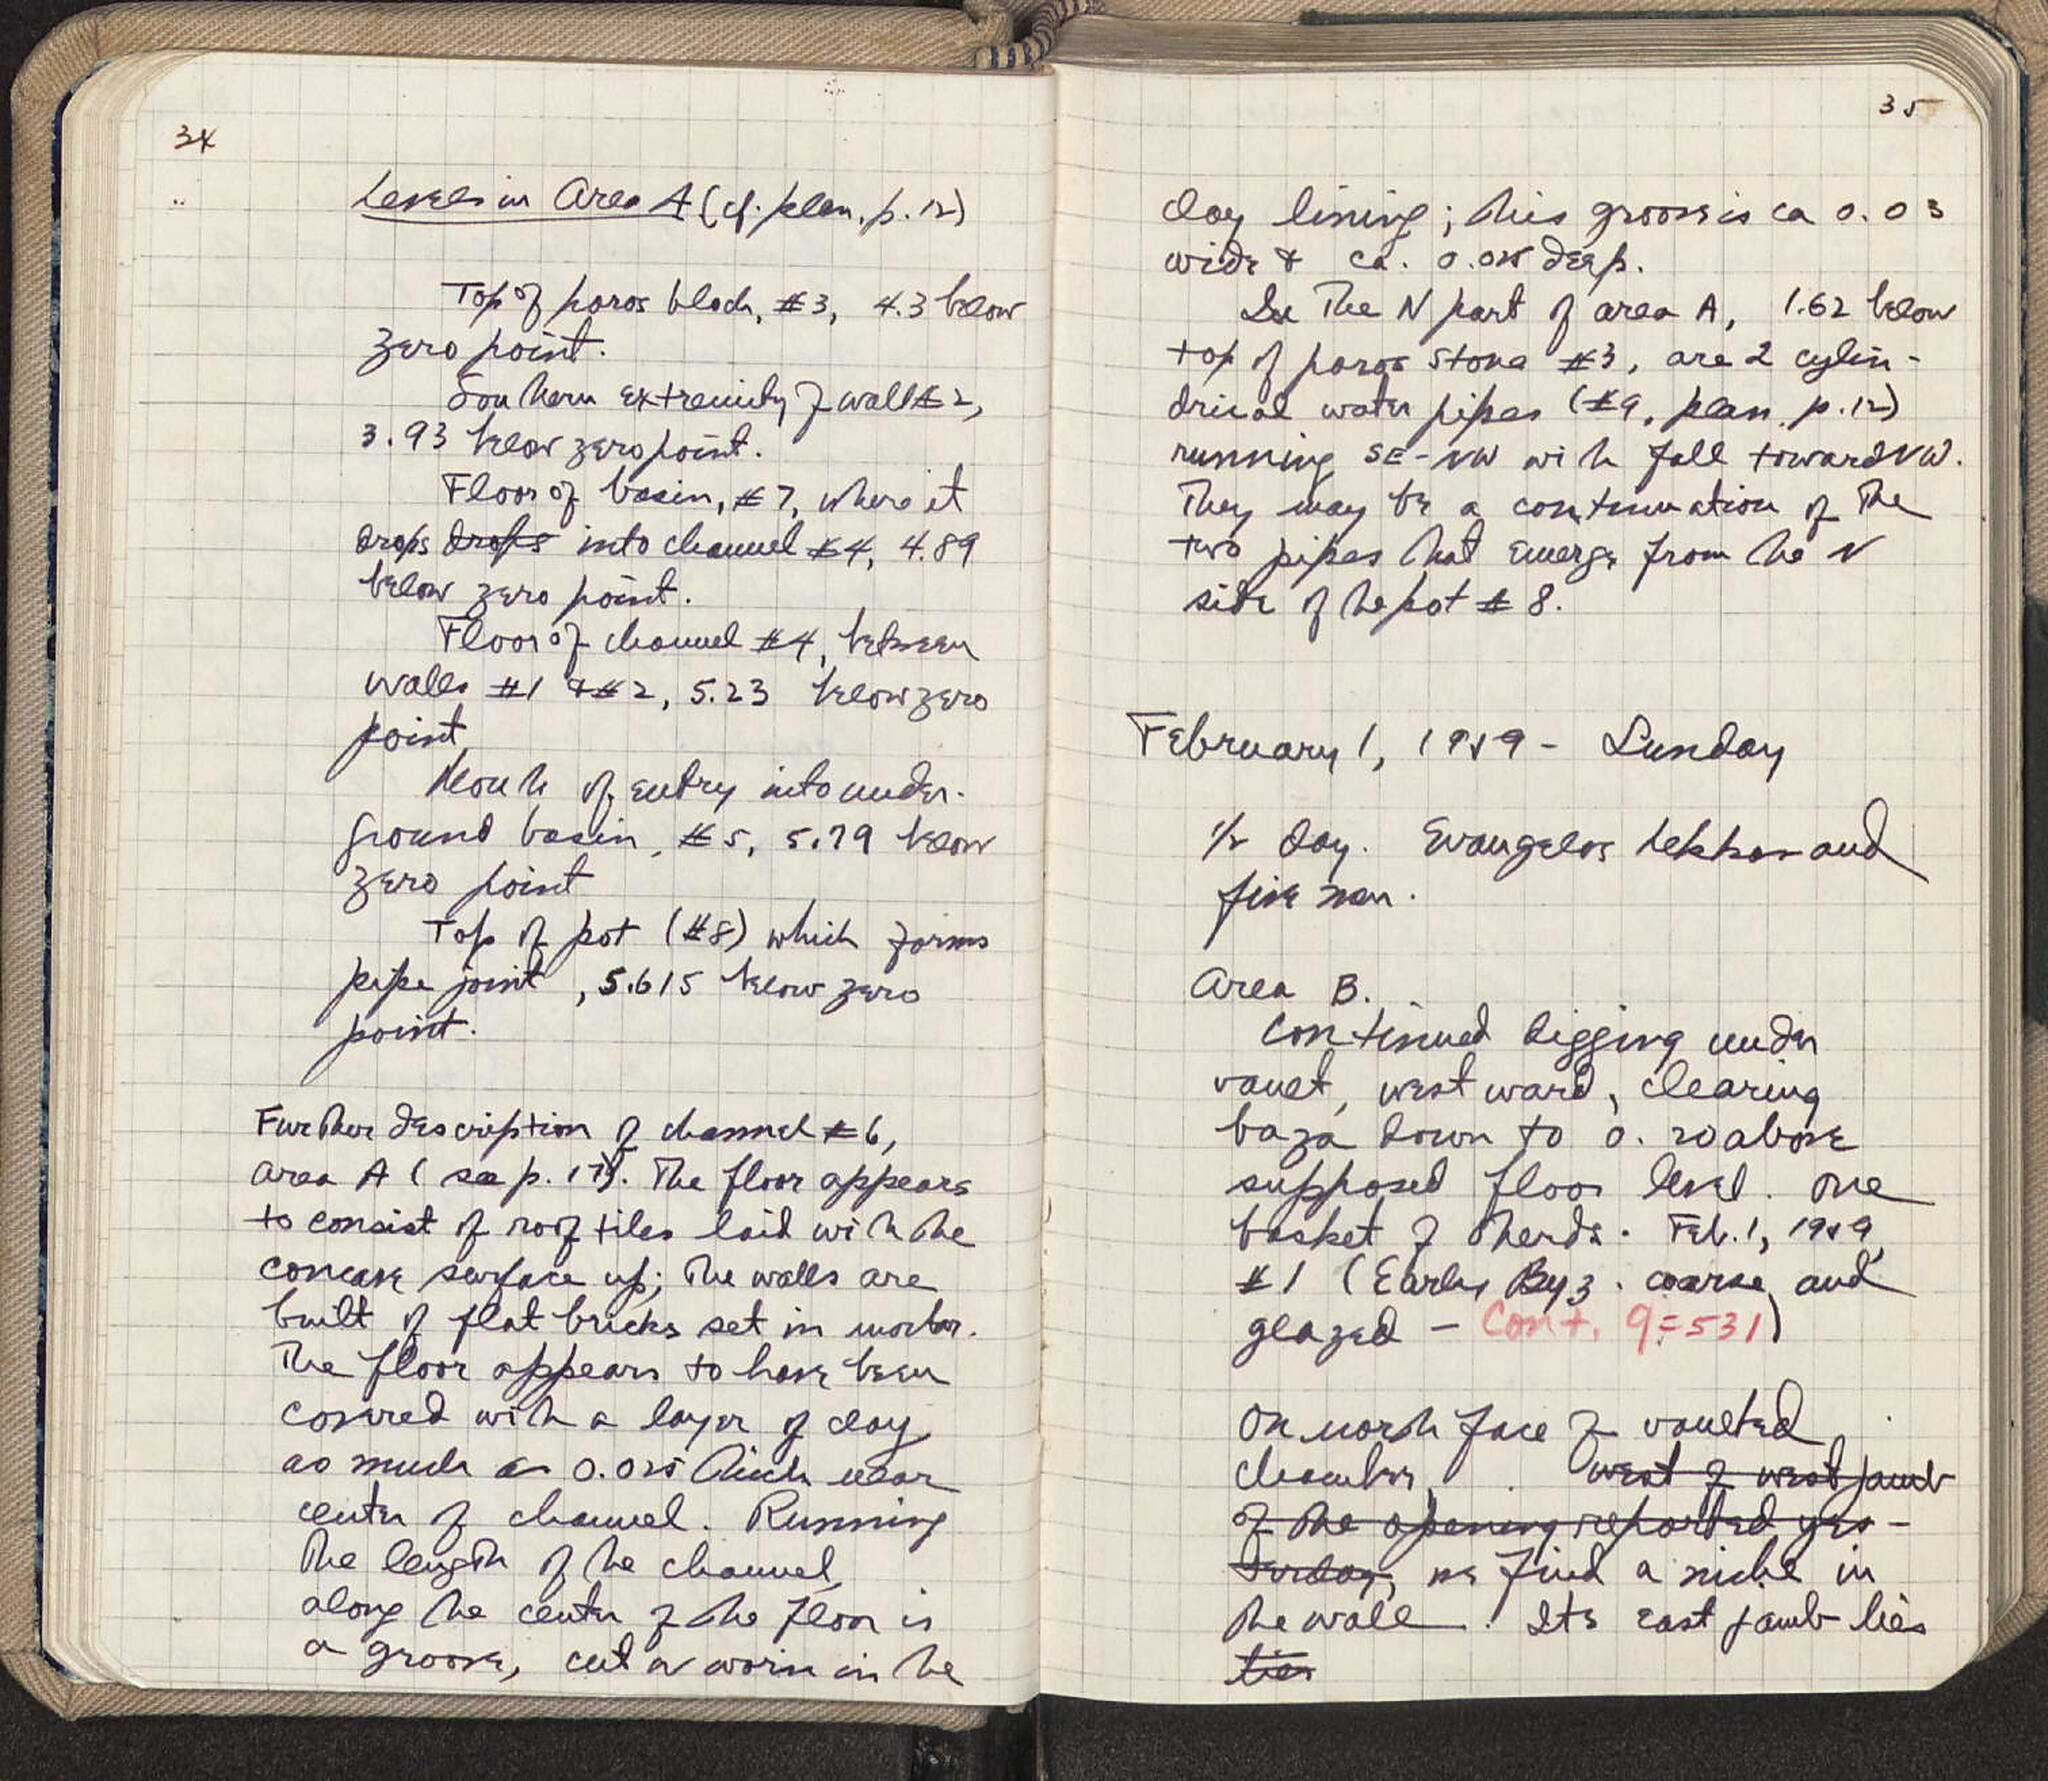 34
Levels in Area A (cf. plan, p. 12)
Top of poros block, #3, 4.3 below
zero point.
Southern extremity of wall #2,
3.93 below zero point.
Floor of basin, #7, where it
drops drops into channel #4, 4.89
below zero point.
Floor of channel #4, between
walls #1 & #2, 5.23 below zero
point
Mouth of entry into under-
ground basin, #5, 5.79 below
zero point
Top of pot (#8) which forms
pipe joint, 5.615 below zero
point.
Further description of channel #6,
area A (see p. 17). The floor appears
to consist of roof tiles laid with the
concave surface up; the walls are
built of flat bricks set in mortar.
The floor appears to have been
covered with a layer of clay
as much as 0.025 thick near
center of channel. Running
the length of the channel
along the center of the floor is
a groove, cut or worn in the
35
clay lining; this groove is ca 0.03
wide & ca. 0.025 deep.
In the N part of area A, 1.62 below
top of poros stone #3, are 2 cylin-
drical water pipes (#9, plan, p. 12)
running SE-NW with fall toward NW.
They may be a continuation of the
two pipes that emerge from the N
side of the pot #8.
February 1, 1959 - Sunday
1/2 day. Evangelos Lekkas and
five men.
Area B.
Continued digging under
vault, westward, clearing
baza down to 0.20 above
supposed floor level. One
basket of sherds. Feb. 1, 1959
#1 (Early Byz. coarse and
glazed - Cont. 9=531)
On north face of vaulted
chamber, west of west jamb
of the opening reported yes-
terday, we find a niche in
the wall. Its east jamb lies